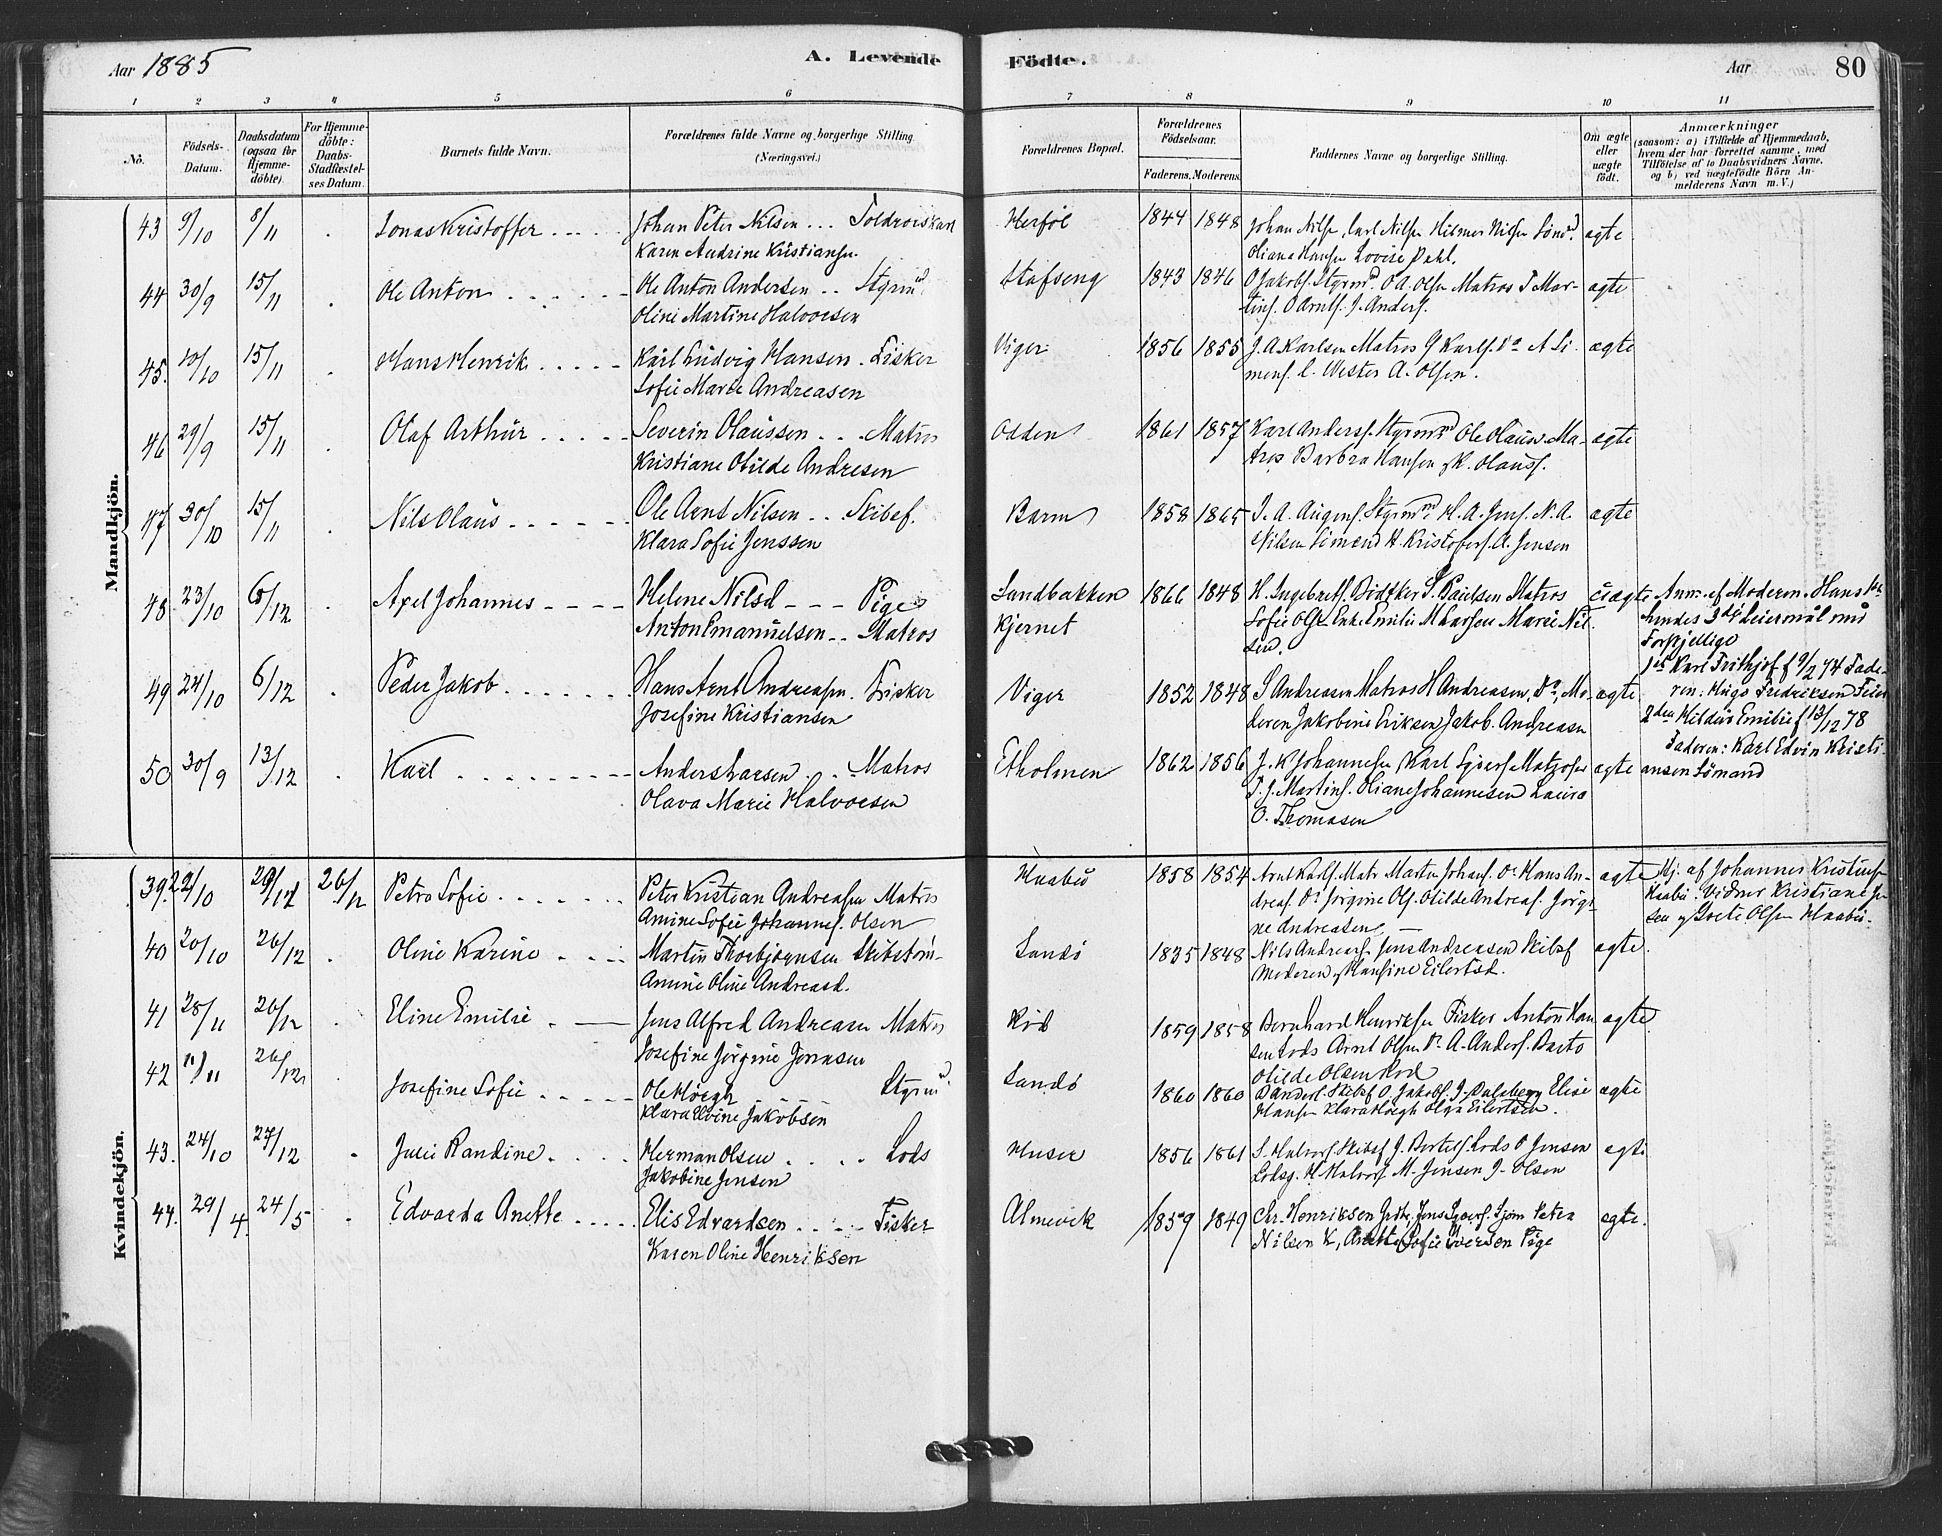 Aar 1885 A. Levende Födte. Aar 80
1 2 3 4 5 6 7 8 9 10 11
No. Födsels-Datum. Daabsdatum (ogsaa for Hjemme-döbte). For Hjemme-döbte: Daabs-Stadfæstel-ses Datum. Barnets fulde Navn. Forældrenes fulde Navne og borgerlige Stilling. (Næringsvei.) Forældrenes Bopæl. Forældrenes Födselsaar. Faderens. Moderens. Faddernes Navne og borgerlige Stilling. Om ægte eller uægte födt. Anmærkninger (saasom: a) i Tilfælde af Hjemmedaab, hvem der har forrettet samme, med Tilföielse af to Daabsvidners Navne, og b) ved uægtefödte Börn Anmelderens Navn m. V.)
Mandkjön.
43 9/10 8/11 Jonas Kristoffer Johan Peter Nilsen Herföl 1844 1848 Johan Nilsn, Carl Nilsn Hilmer Nilsen ægte
Karen Andrine Kristiansn. Oliana Hansen Lovise Dahl.
44 30/9 15/11 Ole Anton Ole Anton Andersen Styrmd Stafseng 1843 1846 O Jakobs. Styrmd O A. Olsn Matros T Mar- ægte
Oline Martine Halvorsen tins. O Arnts. J. Anders.
45. 10/10 15/11 Hans Henrik Karl Ludvig Hansen Fisker Viger 1856 1855 J. A Karlsen Matros Karls. Do A Si- ægte
Sofie Marie Andreasen mens. C. Wester A. Olsen.
46 29/9 15/11 Olaf Arthur Severin Olaussen Matros Odden 1861 1857 Karl Anders. Styrmd Ole Olaus. Ma- ægte
Kristiane Otilde Andresen tros Barbra Hansen K. Olauss.
47 30/10 15/11 Nils Olaus Ole Arnt Nilsen Skibsf. Barm 1858 1865 J. A. Augens. Styrmd H. A. Jens. N. A. ægte
Klara Sofie Jenssen Nilsen Sömend H. Kristofers. A. Jensen
48 23/10 6/12 Axel Johannes Helene Nilsd Pige Sandbakken 1866 1848 H. Ingebreths. Bödker S. Paulsen Matros uægte Anm. af Moderen. Hans
Anton Emanuelsen Matros Kjernet Sofie Olsn Enke Emilie M Larsen Marie Nil- hendes 3die Leiermål med
sen. Forskjellige
1ste Karl Frithjof f 9/2 74 Fade-
49 24/10 6/12 Peder Jakob Hans Arnt Andreasen. Fisker Viger 1852 1848 S Andreasen Matros H Andreasen, Do, Mo- ægte ren: Hugo Fredriksen
Josefine Kristiansen deren Jakobine Eriksen Jakob. Andreasn 2den Hildur Emilie f 13/12 78
Faderen: Karl Edvin Kristi-
50 30/9 13/12 Karl Anders Larsen Matros Etholmen 1862 1856 J. K Johannesn Karl Matroser ægte ansen Sömand
Olava Marie Halvorsen T. J. Martins. Oliane Johannesen Laura
O. Thomasen
Kvindekjön.
39. 22/10 29/12 26/12 Petra Sofie Peter Kristian Andreasen Matros Haabö 1858 1854 Arnt Karls. Matr Martin Johans. Do Hans An- ægte Hj. af Johannes Kristians
Amine Sofie Johannes. Olsen dreas. Do Jørgine Ols. Otilde Andreas. Jørgi- Haabö. Vidner Kristiane Jen
ne Andreasen sen Grete Olsen Haabö.
40 20/10 26/12 Oline Karine Martin Thorbjørnsen Skibstöm- Sandö 1835 1848 Nils Andreas. Jens Andreasen Skibsf ægte.
Amine Oline Andreasd. Moderen Hansine Eilertsd.
41 28/11 26/12 Eline Emilie Jens Alfred Andreasen Matros Röd 1859 1858 Bernhard Henriksen Fisker Anton Han ægte.
Josefine Jørgine Jonasen sen Lods Arnt Olsen Do A. Anders. Basto
42 11/11 26/12 Josefine Sofie Ole Höegh Styrmd Sandö 1860 1860 Otilde Olsen Röd
Klara Elvine Jakobsen Skibsf O. Jakobs. J. Dalsberg Elise ægte
Hansen Klara Höegh Olga Eilertsen.
43. 24/10 27/12 Julie Randine Herman Olsen Lods Huser 1856 1861 S. Halvors. Skibsf J. Bertels. Lods O Jensen ægte
Jakobine Jensen Lodsg. H Halvors M. Jensen J. Olsen
44. 29/4 24/5 Edvarda Anette Elis Edvardsen Fisker Almevik 1859 1849 Chr. Henriksen Grdbr, Jens Iverss. Sjöm Petra ægte.
Karen Oline Henriksen Nilsen K, Anette Sofie Iversen Pige